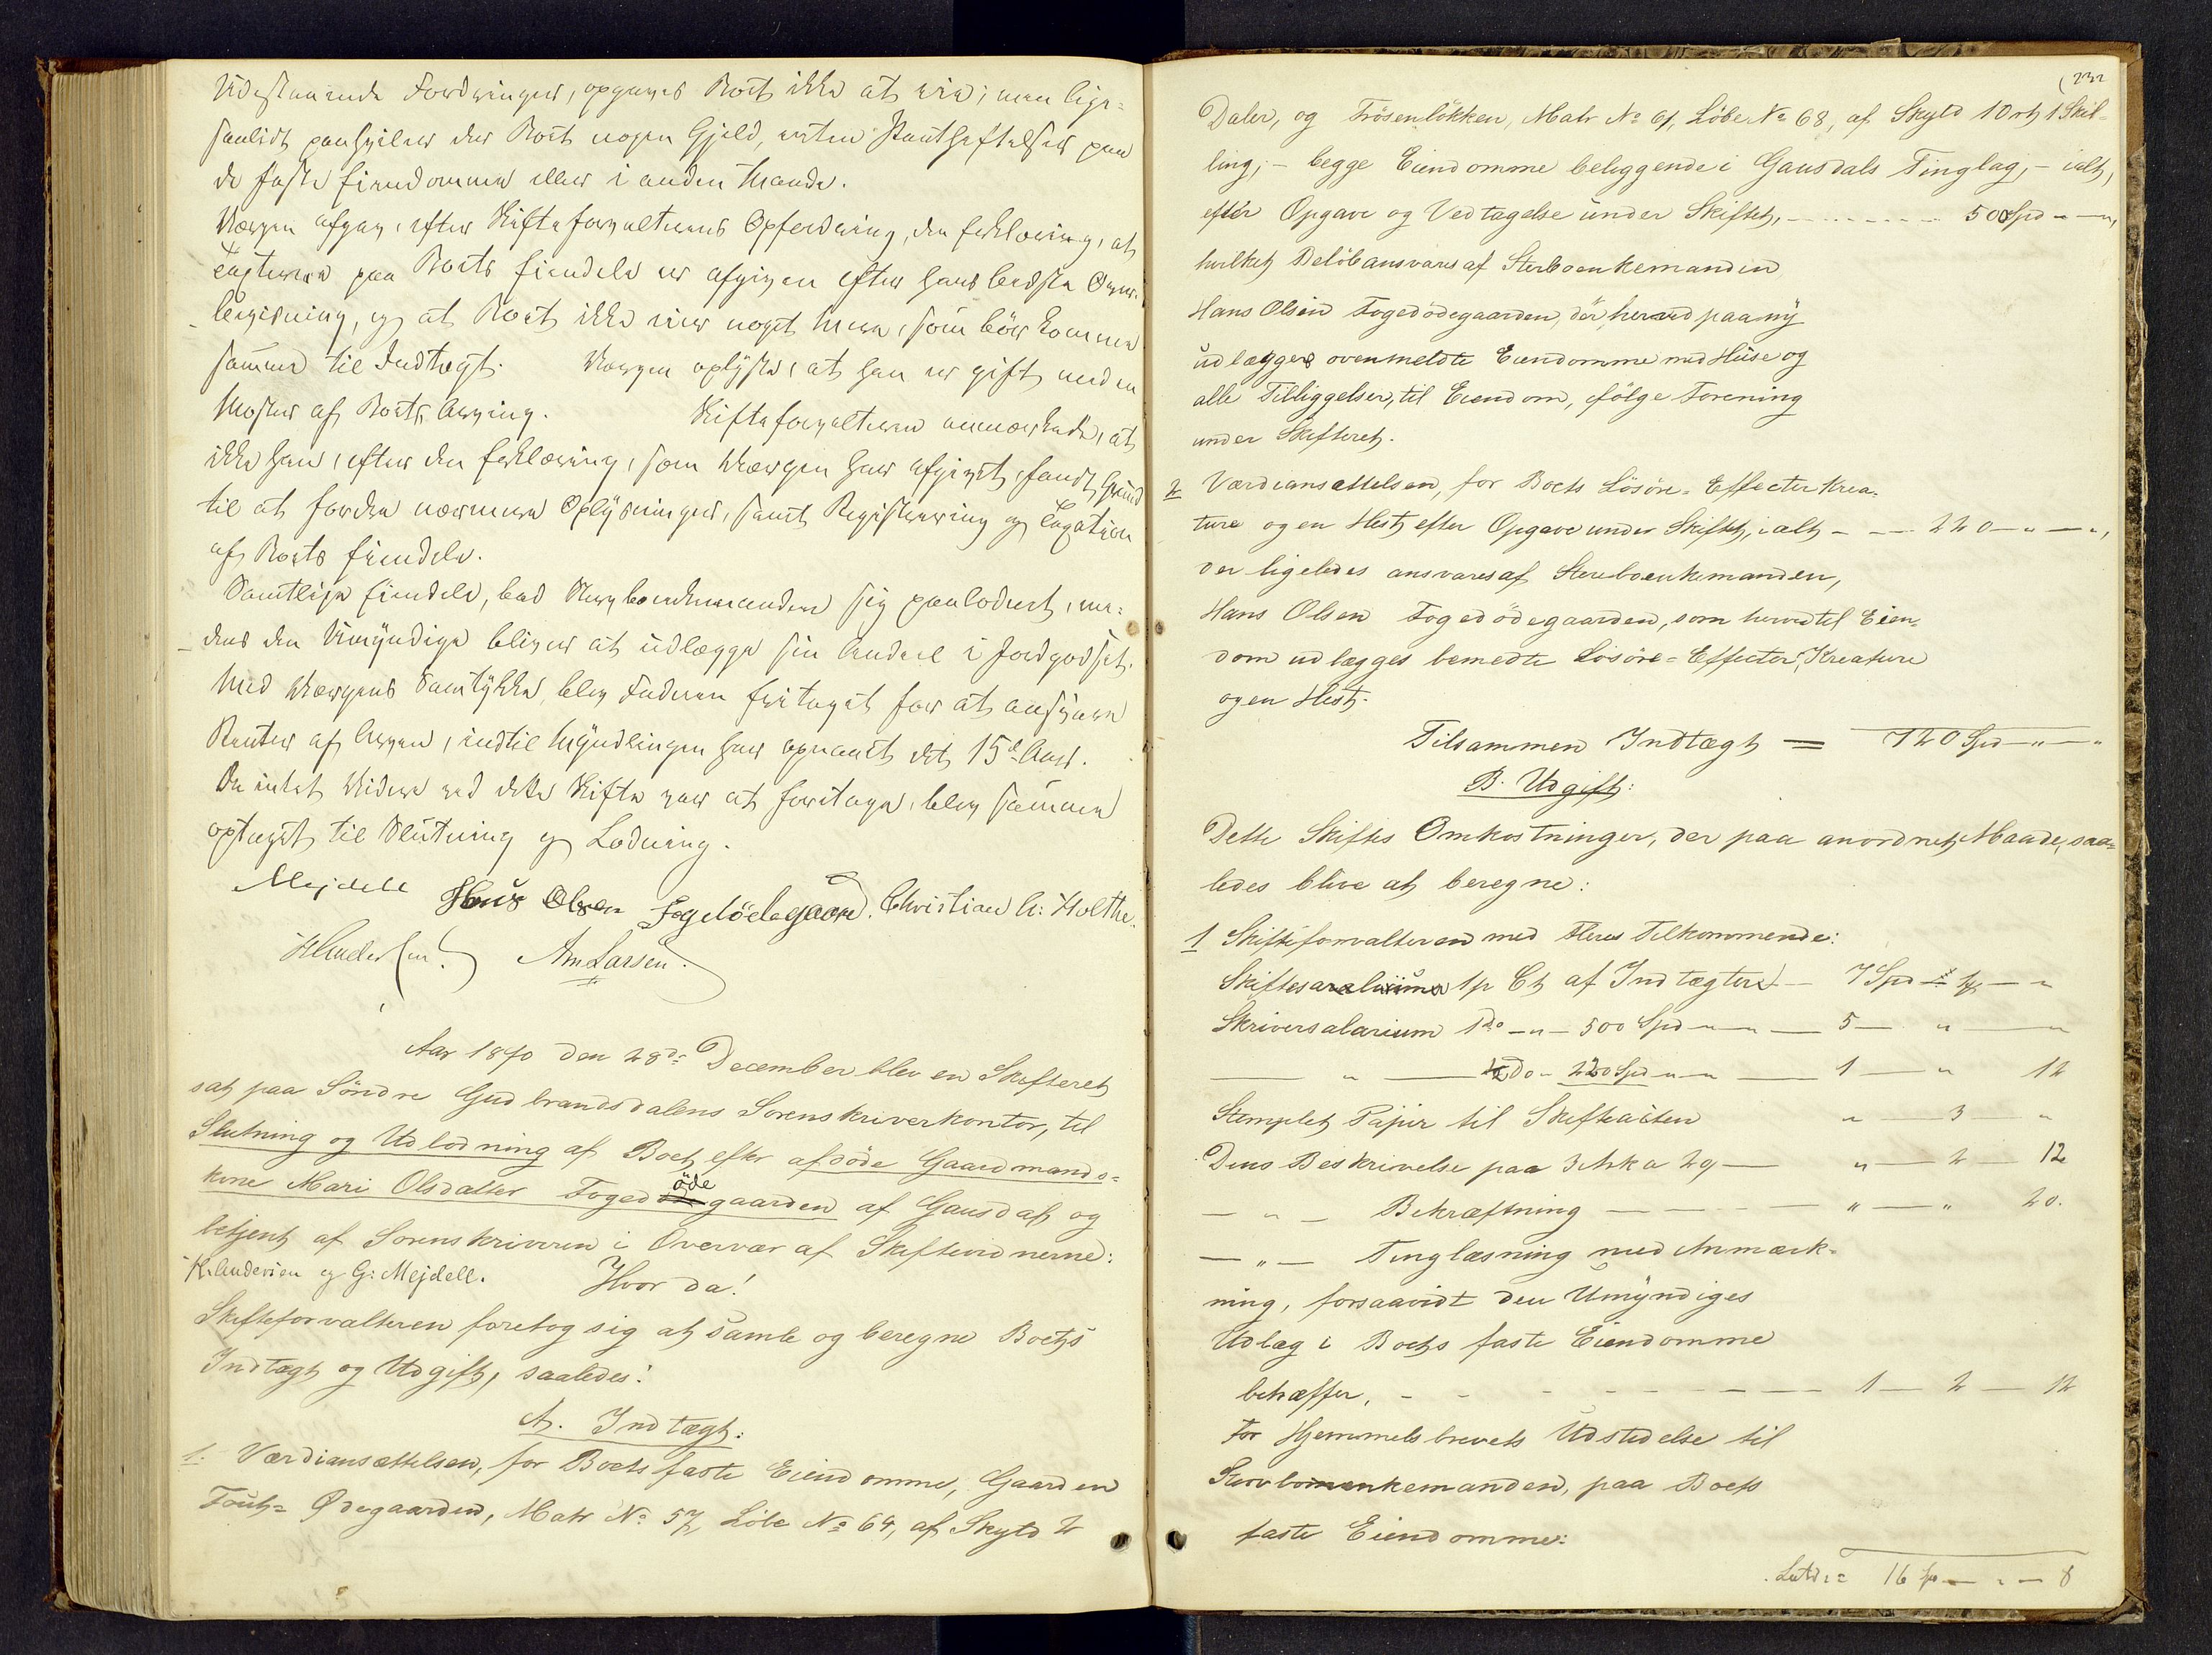 Udestaaende Fordringer, opgaves Boet ikke at eie; men lige-
saalidt paahviler der Boet nogen Gjeld, enten Pantheftelser paa
de faste Eiendomme eller i anden Maade.
Værgen afgav, efter Skifteforvalterens Opfordring, den Erklæring, at
Taxterne paa Boets Eiendele er afgiven efter hans bedste Over-
beviisning, og at Boet ikke eier noget mere, som bör komme
samme til Indtægt. Værgen oplyste, at han er gift med en
Moster af Boets Arving. Skifteforvalteren anmærkede, at
ikke han, efter den Erklæring, som Værgen har afgivet, fandt Grund
til at fordre nærmere Oplysninger, samt Registrering og Taxation
af Boets Eiendele.
Samtlige Eiendele, bad Stervboenkemanden sig paalodnet, me-
dens den Umyndige bliver at udlægge sin Andeel i Jordgodset.
Med Værgens Samtykke blev Faderen fritaget for at ansvare
Renter af Arven, indtil Myndlingen har opnaaet det 15de Aar.
Da intet Videre ved dette Skifte var at foretage, blev samme
optaget til Slutning og Lodning.
Mejdell Hans Olsen Fogedödegaard. Christian A: Holthe.
H Andersen. Am Larsen.
Aar 1870 den 28de December blev en Skifteret
sat paa Söndre Gudbrandsdalens Sorenskriverkontor, til
Slutning og Udlodning af Boet efter afdöde Gaardmands-
kone Mari Olsdatter Foged öde gaarden af Gausdal og
betjent af Sorenskriveren i Overvær af Skiftevidnerne:
H. Andersen og G: Mejdell. Hvor da!
Skifteforvalteren foretog sig at samle og beregne Boets
Indtægt og Udgift, saaledes:
A. Indtægt:
1. Værdiansættelsen, for Boets faste Eiendomme, Gaarden
Fout- Ødegaarden, Matr No 57, Löbe No 64, af Skyld 2
232
Daler, og Frösenlökken, Matr No 61, Löbe No 68, af Skyld 1 Ort 1 Skil-
ling; - begge Eiendomme beliggende i Gausdals Tinglag, - ialt,
efter Opgave og Vedtagelse under Skiftet, - 500 Spd - " - ",
hvilket Belöb ansvares af Sterboenkemanden
Hans Olsen Fogedödegaarden, der herved paany
udlægges ovenmeldte Eiendomme med Huse og
alle Tilliggelser, til Eiendom, fölge Forening
under Skifteret.
2 Værdiansættelsen, for Boets Lösöre-Effecter Krea-
ture og en Hest efter Opgave under Skiftet, ialt - 220 - " - ",
der ligeledes ansvares af Sterboenkemanden,
Hans Olsen Fogedödegaarden, som herved til Eien-
dom udlægges bemeldte Lösöre-Effecter, Kreature
og en Hest.
Tilsammen Indtægt = 720 Spd - " - "
B. Udgift:
Dette Skiftes Omkostninger, der paa anordnet Maade, saa-
ledes blive at beregne:
1 Skifteforvalteren med Fleres Tilkommende:
Skiftesalarium 1 p Ct af Indtægten - 7 Spd 1 - "
Skriversalarium 1 do - " - 500 Spd - " - " - 5 - " - "
- " - ½ do - 220 Spd - " - " - 1 - " 12
Stemplet Papir til Skifteacten " - 3 - "
Dens Beskrivelse paa 3 Ark a 29 - " - 2 - 12
- " - Bekræftning - " - " 20.
- " - Tinglæsning med Anmærk-
ning, forsaavidt den Umyndiges
Udlæg i Boets faste Eiendomme
betræffer, - 1 - 2 12
For Hjemmelsbrevets Udstedelse til
Stervboenkemanden, paa Boets
faste Eiendomme:
Latus = 16 Sp - " - 8